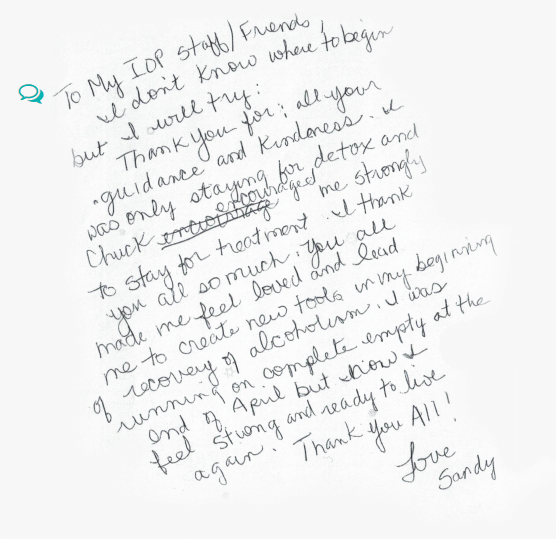 To My IOP Staff/Friends,
I don't know where to begin
but I will try:
Thank you for: all your
guidance and kindness. I
was only staying for detox and
encouraged
Chuck encourage me strongly
to stay for treatment. I thank
you all so much. You all
made me feel loved and lead
me to create new tools in my beginning
of recovery of alcoholism. I was
running on complete empty at the
end of April but now I
feel strong and ready to live
again. Thank you All!
Love
Sandy